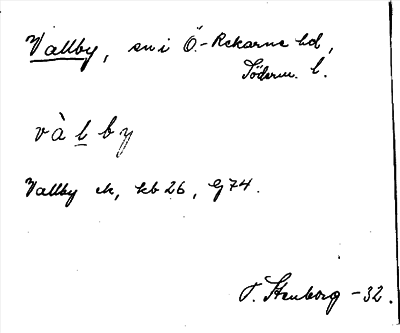 Vallby, sn i Ö.-Rekarne hd,
Söderm. l.
và l b y
Vallby ck, kb 26, G74.
T. Stenborg -32.